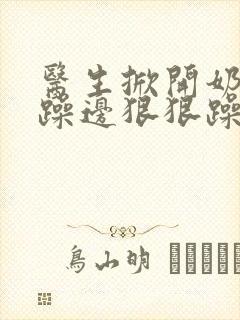 醫生掀開奶
躁邊狠狠躁
鳥山明